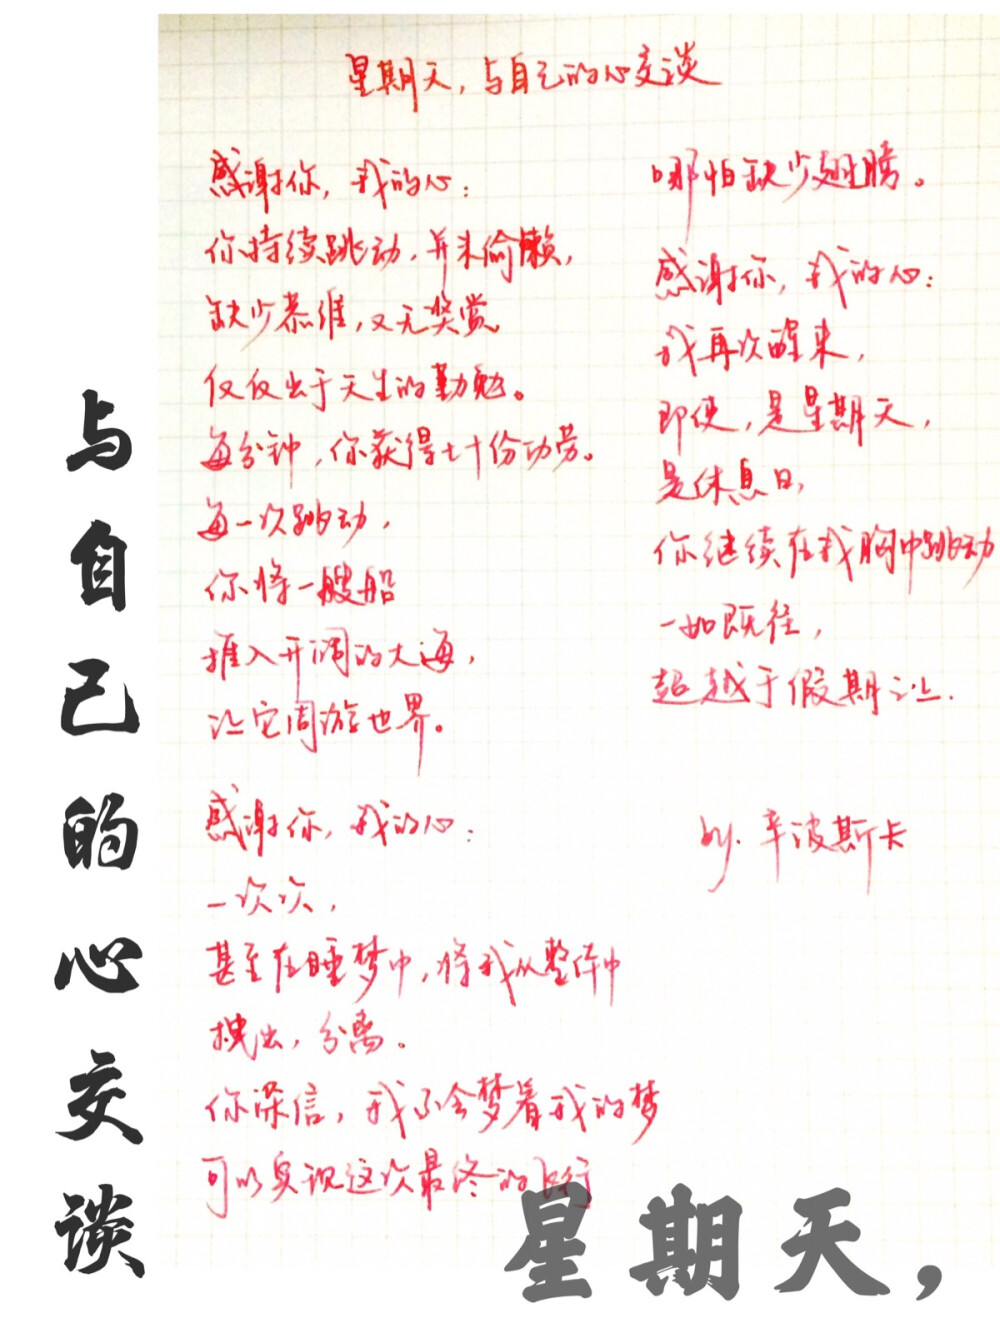 星期天，与自己的心交谈
感谢你，我的心：
你持续跳动，并未偷懒，
缺少恭维，又无奖赏。
仅仅出于天生的勤勉。
每分钟，你获得七十份功劳。
每一次跳动，
你将一艘船
推入开阔的大海，
让它周游世界。
感谢你，我的心：
一次次，
甚至在睡梦中，将我从整体中
拽出，分离。
你深信，我不会梦着我的梦
可以实现这次最终的飞行
哪怕缺少翅膀。
感谢你，我的心：
我再次醒来，
即使，是星期天，
是休息日，
你继续在我胸中跳动
一如既往，
超越于假期之上.
by. 辛波斯卡
星期天，
与自己的心交谈